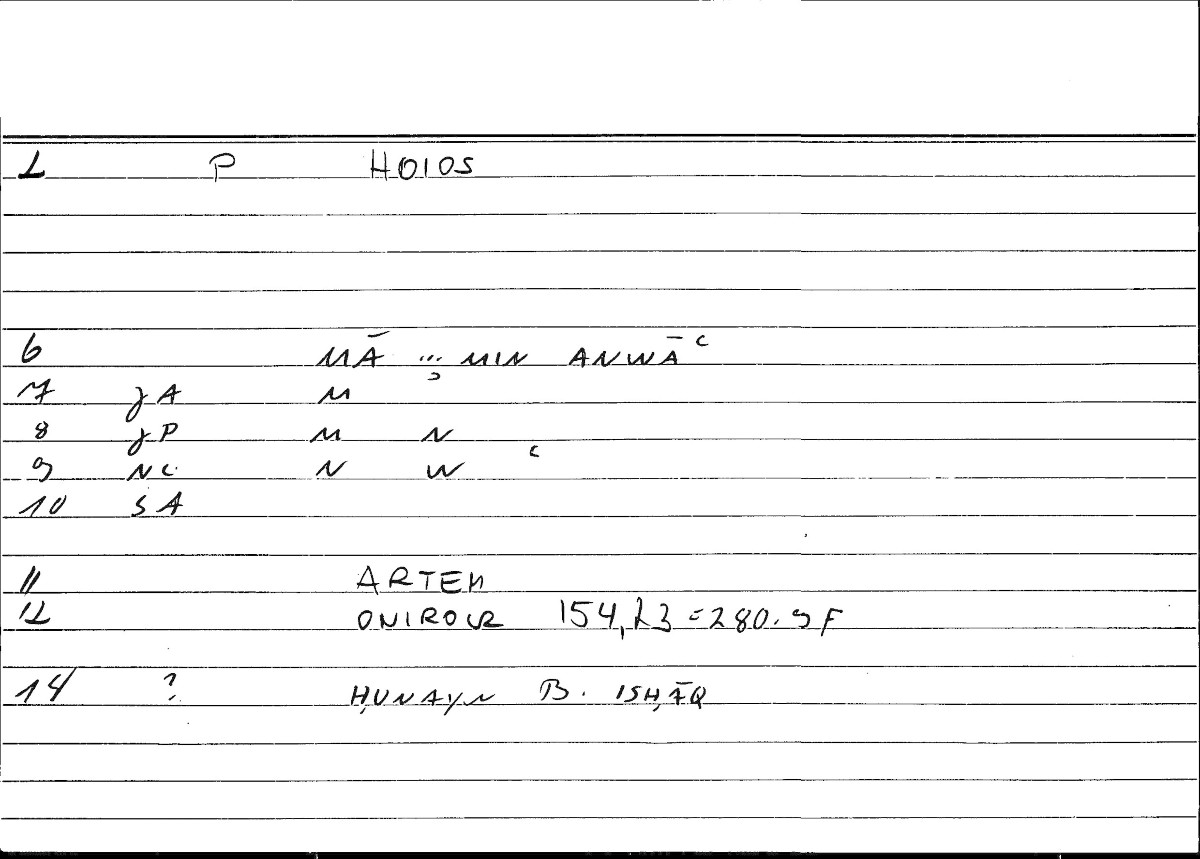 2 P HOIOS
6 MĀ ... MIN ANWĀʿ
7 JA M
8 JP M N
9 NC N W ʿ
10 SA
11 ARTEM
12 ONIROCR 154,23=280.9F
14 ? ḤUNAYN B. ISḤĀQ